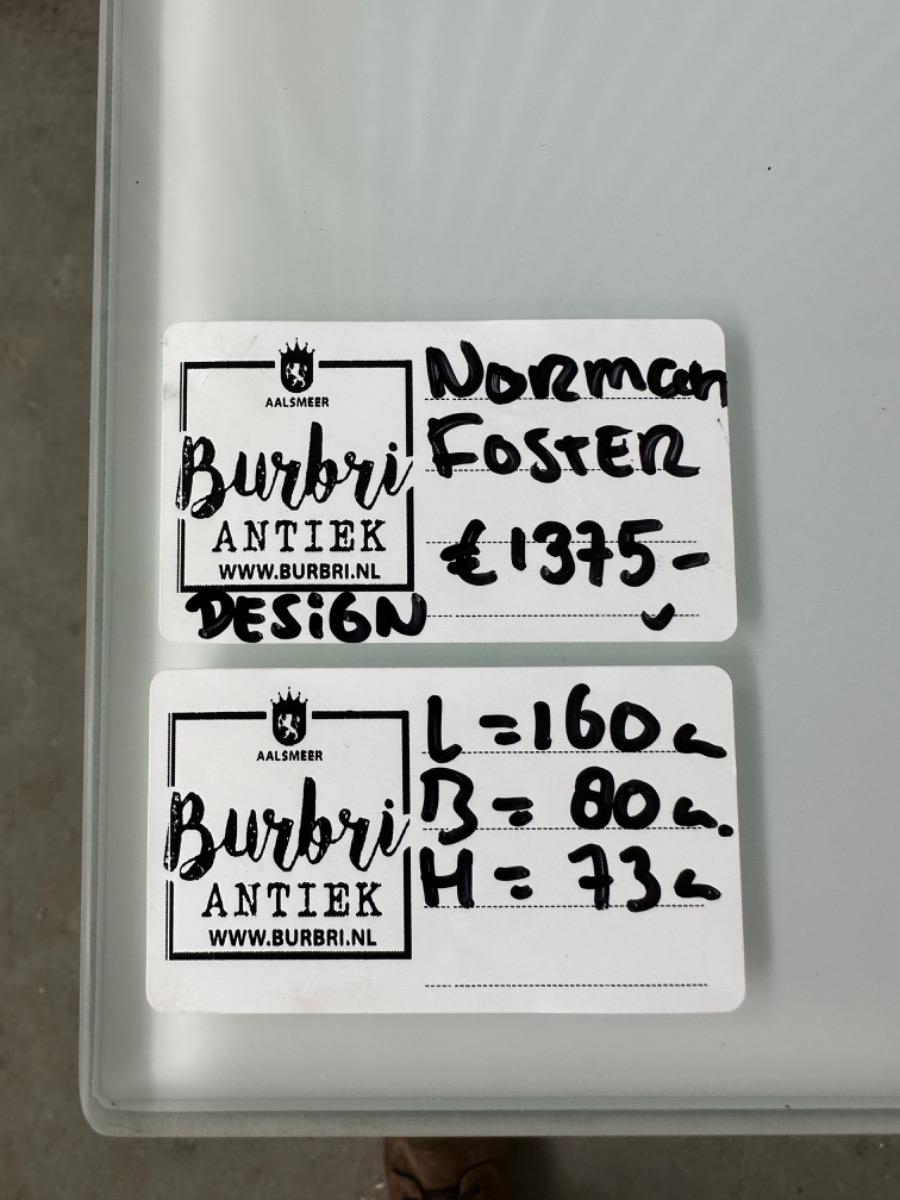 AALSMEER
Burbri
ANTIEK
WWW.BURBRI.NL
DESiGN
NORman
FOSTER
€1375-
AALSMEER
Burbri
ANTIEK
WWW.BURBRI.NL
L = 160 c
B = 80 c.
H = 73 c